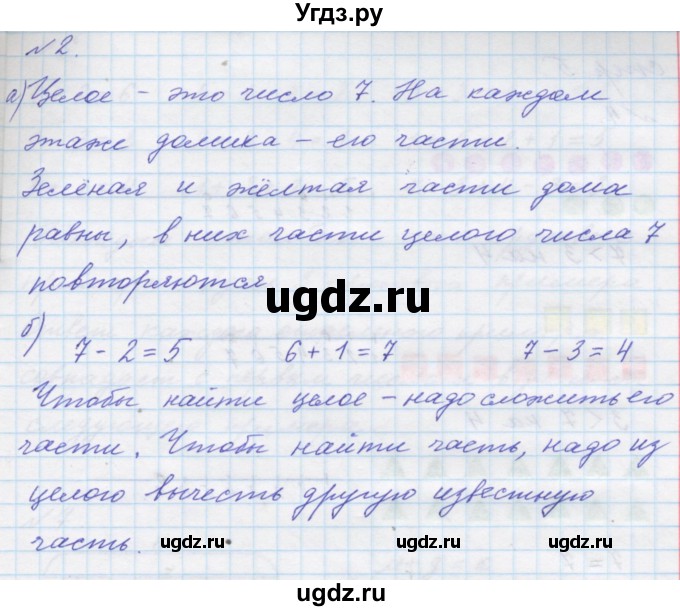 Угдз.ру
№ 2.
а) Целое – это число 7. На каждом
этаже домика – его части.
Зелёная и жёлтая части дома
равны, в них части целого числа 7
повторяются
ugdz.ru ugdz.ru
б)
7 - 2 = 5 6 + 1 = 7 7 - 3 = 4
Чтобы найти целое – надо сложить его
части. Чтобы найти часть, надо из
целого вычесть другую известную
часть.
ugdz.ru ugdz.ru ugdz.ru
ugdz.ru